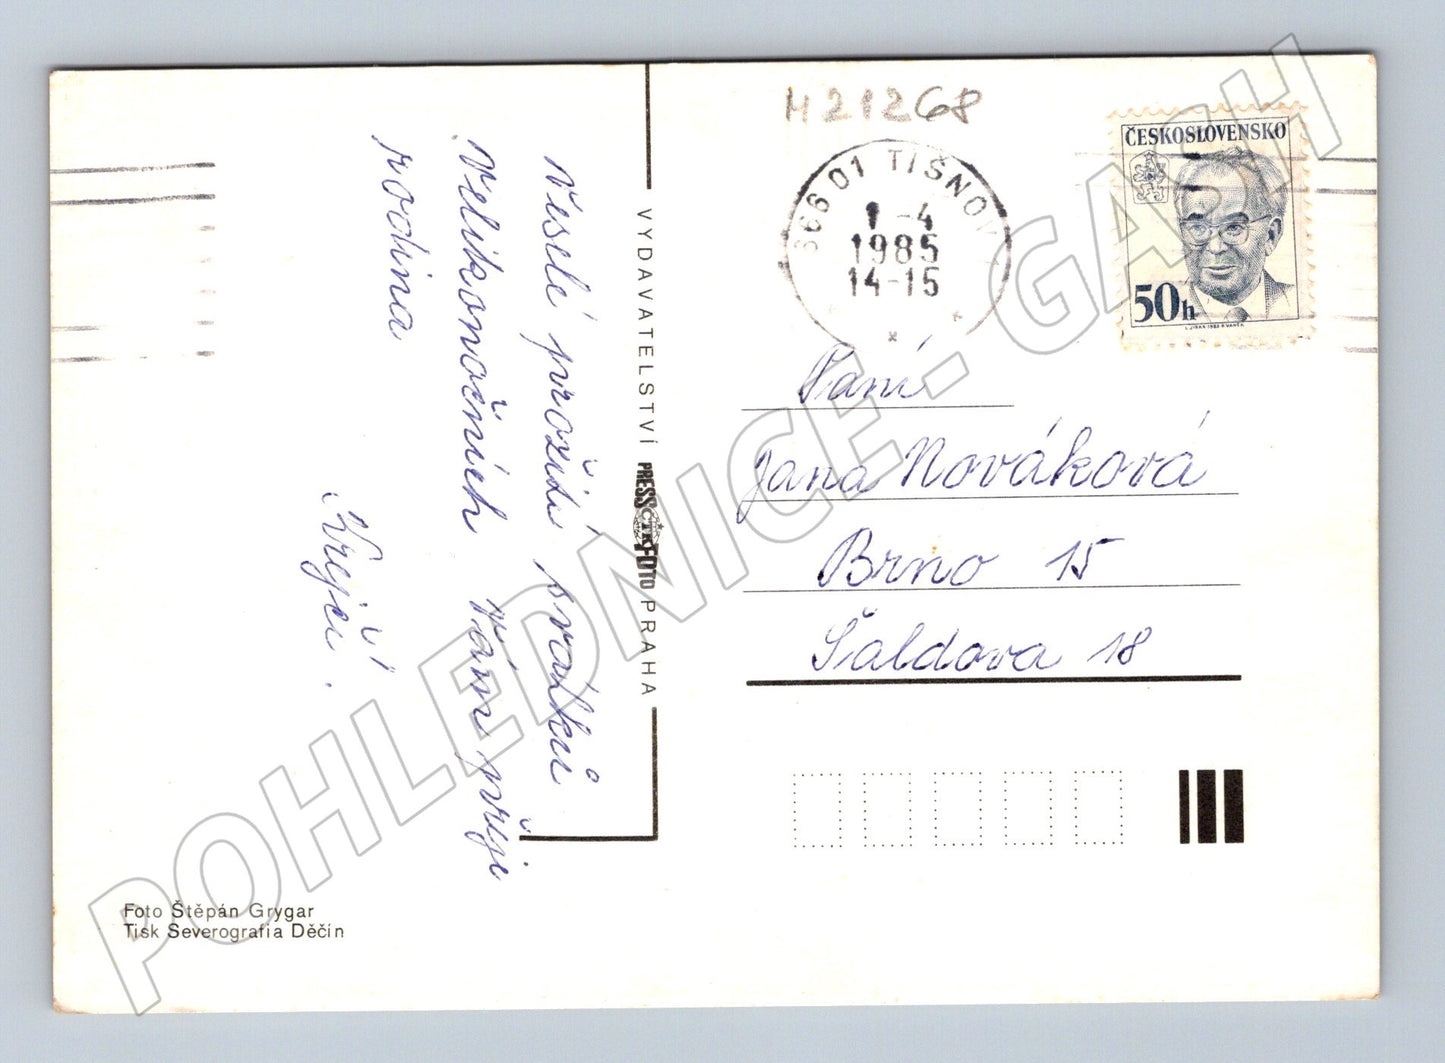 Veselé prožití svátků
Velikonočních Vám přeje
rodina
Krejčí.
VYDAVATELSTVÍ PRESSFOTO PRAHA
ČTK
Foto Štěpán Grygar
Tisk Severografia Děčín
H21268
666 01 TIŠNOV 1
1-4
1985
14-15
ČESKOSLOVENSKO
50h
Paní
Jana Nováková
Brno 15
Šaldova 18
POHLEDNICE - GASH